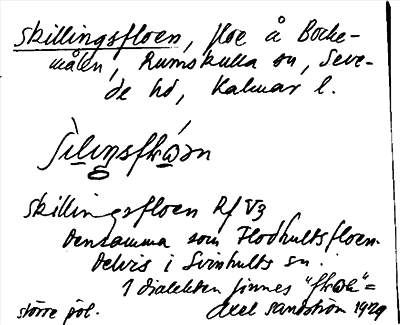 Skillingsfloen, floe å Bocke-
målen, Rumskulla sn, Seve-
de hd, Kalmar l.
Skillingsfloen R/V3
Densamma som Flodhultsfloen.
Delvis i Svinhults sn.
I dialekten finnes
större pöl. Axel Sandström 1929